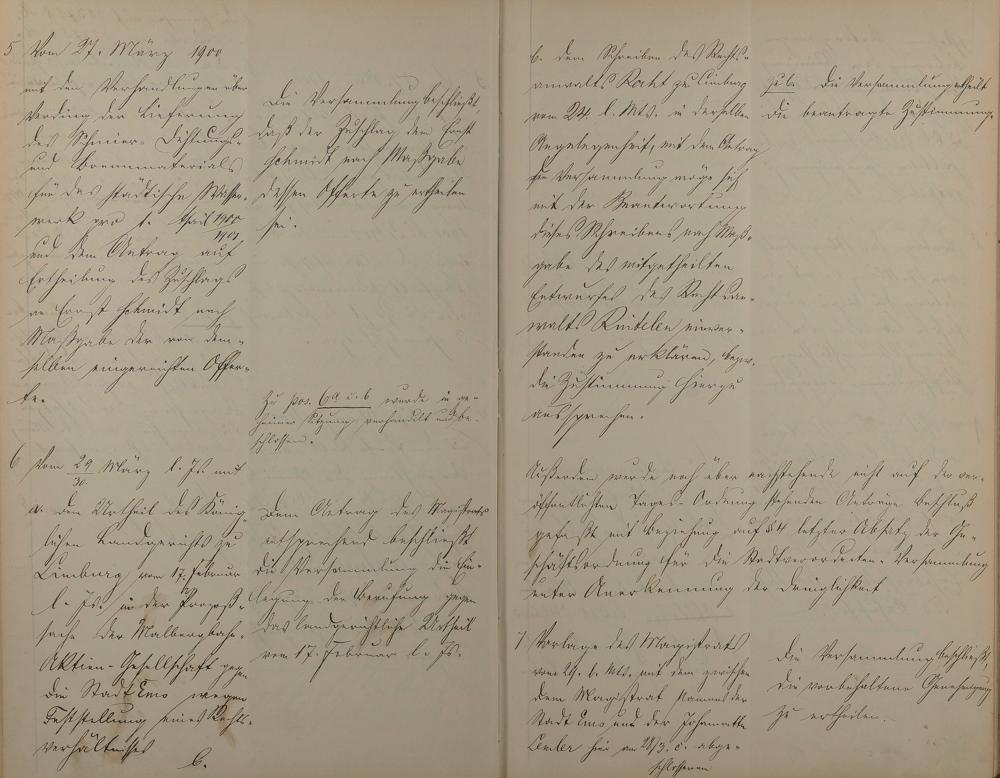 5 Vom 27. März 1900
mit den Verhandlungen über
Verding der Lieferung
des Schmier- Dichtungs-
und Brennmaterials
für das städtische Wasser-
werk pro 1. April 1900/1901
und dem Antrag auf
Ertheilung des Zuschlags
an Ernst Schmidt nach
Maßgabe der von dem-
selben eingereichten Offer-
te.
Die Versammlung beschließt
daß der Zuschlag dem Ernst
Schmidt nach Maßgabe
dessen Offerte zu ertheilen
sei.
Zu pos. 6a u. b wurde in ge-
heimer Sitzung verhandelt und be-
schlossen.
6 Vom 29/30 März l. Js. mit
a. dem Urtheil des König-
lichen Landgerichts zu
Limburg, vom 17. Februar
l. Js. in der Prozeß-
sache der Malbergbahn-
Aktien-Gesellschaft gegen
die Stadt Ems wegen
Feststellung eines Rechts-
verhältnisses
b.
Dem Antrag des Magistrats
entsprechend beschließt
die Versammlung die Ein-
legung der Berufung gegen
das landgerichtliche Urtheil
vom 17. Februar l. Js.
b. dem Schreiben des Rechts-
anwalts zu Limburg
vom 24 l. Mts. in derselben
Angelegenheit, mit dem Antrag
die Versammlung möge sich
mit der Beantwortung
dieses Schreibens nach Maß-
gabe des mitgetheilten
Entwurfes des Rechtsan-
walts einver-
standen zu erklären, bezw.
die Zustimmung hierzu
aussprechen.
zu b. Die Versammlung ertheilt
die beantragte Zustimmung.
Außerdem wurde noch über nachstehende nicht auf der ver-
öffentlichten Tages-Ordnung stehenden Anträge Beschluß
gefaßt mit Beziehung auf § 4 letzter Absatz der Ge-
schäftsordnung für die Stadtverordneten-Versammlung
unter Anerkennung der Dringlichkeit
7. Vorlage des Magistrats
vom 29. l. Mts. mit dem zwischen
dem Magistrat Namens der
Stadt Ems und der
hier am 28/3. c. abge-
schlossenen
Die Versammlung beschließt,
die vorbehaltene Genehmigung
zu ertheilen.